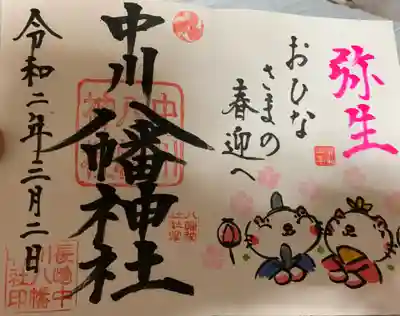 弥生
おひな
さまの
春迎へ
中川八幡神社
令和二年三月二日
中川
八幡
神社
長崎中
川八幡
神社印